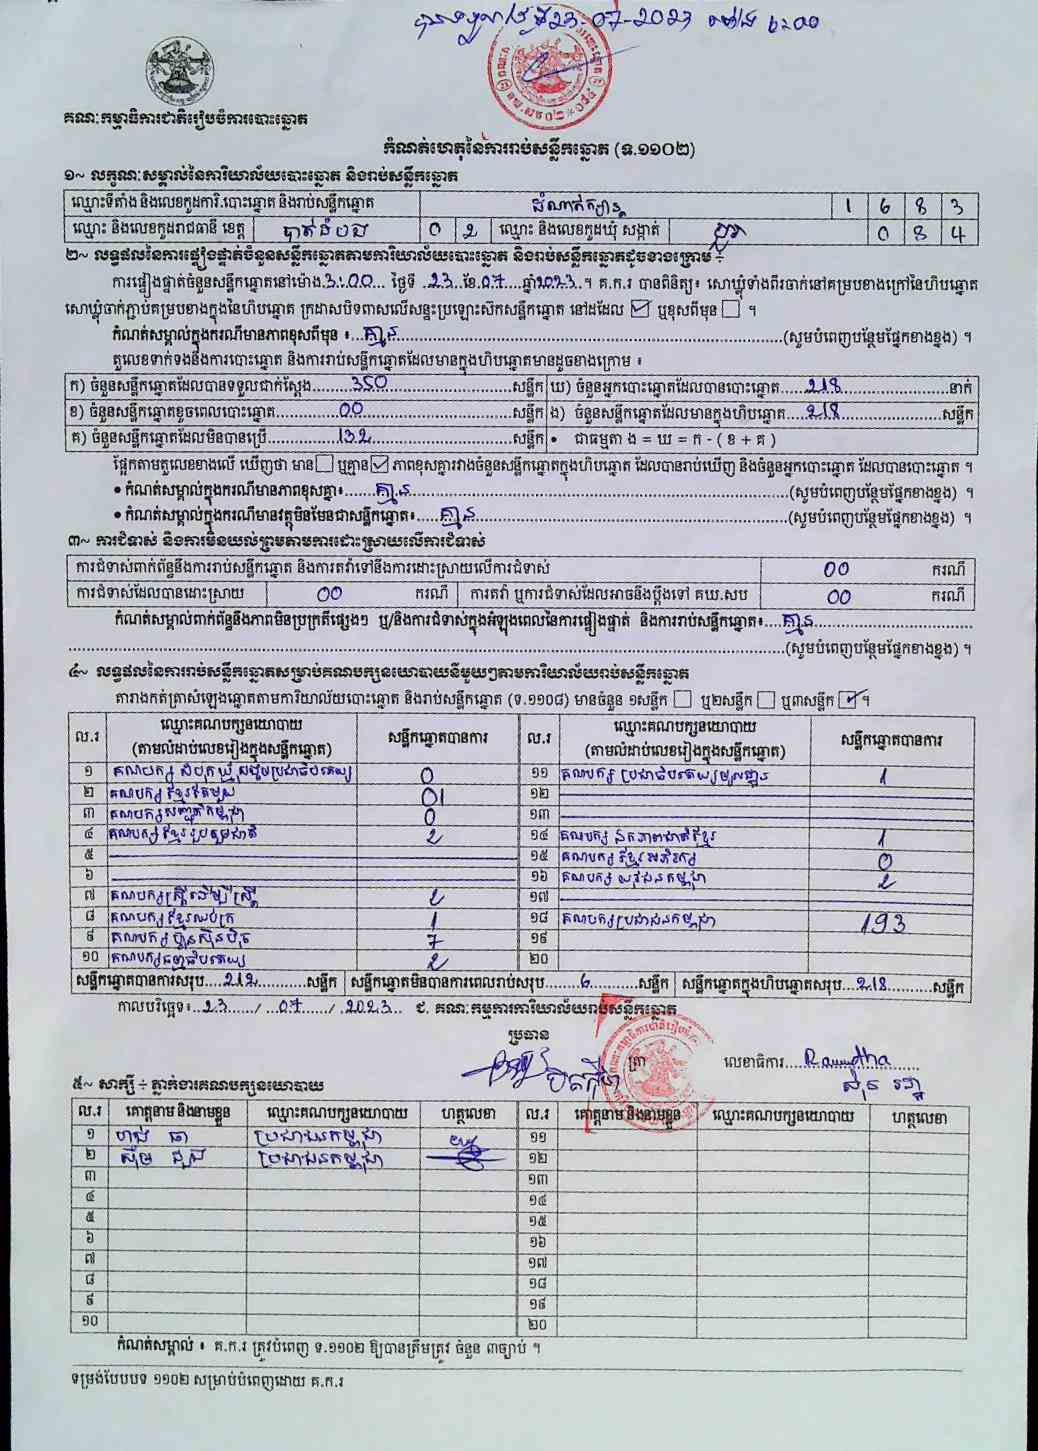 23-07-2023 ម៉ោង ៤:00
គណៈកម្មាធិការជាតិរៀបចំការបោះឆ្នោត
កំណត់ហេតុនៃការរាប់សន្លឹកឆ្នោត (ទ.១១០២)
១~ លក្ខណៈសម្គាល់នៃការិយាល័យបោះឆ្នោត និងរាប់សន្លឹកឆ្នោត
ឈ្មោះទីតាំង និងលេខកូដការិ.បោះឆ្នោត និងរាប់សន្លឹកឆ្នោត 1 6 8 3
ឈ្មោះ និងលេខកូដរាជធានី ខេត្ត បាត់ដំបង 0 2 ឈ្មោះ និងលេខកូដឃុំ សង្កាត់ 0 8 4
២~ លទ្ធផលនៃការផ្ទៀងផ្ទាត់ចំនួនសន្លឹកឆ្នោតតាមការិយាល័យបោះឆ្នោត និងរាប់សន្លឹកឆ្នោតដូចខាងក្រោម ÷
ការផ្ទៀងផ្ទាត់ចំនួនសន្លឹកឆ្នោតនៅម៉ោង.3:00... ថ្ងៃទី .23..ខែ.07....ឆ្នាំ2023..។ គ.ក.រ បានពិនិត្យ៖ សោឃ្លុំទាំងពីរចាក់នៅគម្របខាងក្រៅនៃហិបឆ្នោត
សោឃ្លុំចាក់ភ្ជាប់គម្របខាងក្នុងនៃហិបឆ្នោត ក្រដាសបិទពាសលើសន្ទះប្រឡោះស៊កសន្លឹកឆ្នោត នៅដដែល ☑ ឬខុសពីមុន ☐ ។
កំណត់សម្គាល់ក្នុងករណីមានភាពខុសពីមុន ៖...គ្មាន...(សូមបំពេញបន្ថែមផ្នែកខាងខ្នង) ។
តួលេខទាក់ទងនឹងការបោះឆ្នោត និងការរាប់សន្លឹកឆ្នោតដែលមានក្នុងហិបឆ្នោតមានដូចខាងក្រោម ៖
ក) ចំនួនសន្លឹកឆ្នោតដែលបានទទួលជាក់ស្តែង.......350.......សន្លឹក ឃ) ចំនួនអ្នកបោះឆ្នោតដែលបានបោះឆ្នោត.....218.......នាក់
ខ) ចំនួនសន្លឹកឆ្នោតខូចពេលបោះឆ្នោត.......00.......សន្លឹក ង) ចំនួនសន្លឹកឆ្នោតដែលមានក្នុងហិបឆ្នោត.....218.......សន្លឹក
គ) ចំនួនសន្លឹកឆ្នោតដែលមិនបានប្រើ.......132.......សន្លឹក • ជាធម្មតា ង = ឃ = ក - ( ខ + គ )
ផ្អែកតាមតួលេខខាងលើ ឃើញថា មាន ☐ ឬគ្មាន ☑ ភាពខុសគ្នារវាងចំនួនសន្លឹកឆ្នោតក្នុងហិបឆ្នោត ដែលបានរាប់ឃើញ និងចំនួនអ្នកបោះឆ្នោត ដែលបានបោះឆ្នោត ។
• កំណត់សម្គាល់ក្នុងករណីមានភាពខុសគ្នា៖......គ្មាន......(សូមបំពេញបន្ថែមផ្នែកខាងខ្នង) ។
• កំណត់សម្គាល់ក្នុងករណីមានវត្ថុមិនមែនជាសន្លឹកឆ្នោត៖.....គ្មាន......(សូមបំពេញបន្ថែមផ្នែកខាងខ្នង) ។
៣~ ការជំទាស់ និងការមិនយល់ព្រមតាមការដោះស្រាយលើការជំទាស់
ការជំទាស់ពាក់ព័ន្ធនឹងការរាប់សន្លឹកឆ្នោត និងការតវ៉ាទៅនឹងការដោះស្រាយលើការជំទាស់ 00 ករណី
ការជំទាស់ដែលបានដោះស្រាយ 00 ករណី ការតវ៉ា ឬការជំទាស់ដែលអាចនឹងប្តឹងទៅ គឃ.សប 00 ករណី
កំណត់សម្គាល់ពាក់ព័ន្ធនឹងភាពមិនប្រក្រតីផ្សេងៗ ឬ/និងការជំទាស់ក្នុងអំឡុងពេលនៃការផ្ទៀងផ្ទាត់ និងការរាប់សន្លឹកឆ្នោត៖....គ្មាន......
(សូមបំពេញបន្ថែមផ្នែកខាងខ្នង) ។
៤~ លទ្ធផលនៃការរាប់សន្លឹកឆ្នោតសម្រាប់គណបក្សនយោបាយនីមួយៗតាមការិយាល័យរាប់សន្លឹកឆ្នោត
តារាងកត់ត្រាសំឡេងឆ្នោតតាមការិយាល័យបោះឆ្នោត និងរាប់សន្លឹកឆ្នោត (ទ.១១០៨) មានចំនួន ១សន្លឹក ☐ ឬ២សន្លឹក ☐ ឬ៣សន្លឹក ☑ ។
ល.រ ឈ្មោះគណបក្សនយោបាយ (តាមលំដាប់លេខរៀងក្នុងសន្លឹកឆ្នោត) សន្លឹកឆ្នោតបានការ ល.រ ឈ្មោះគណបក្សនយោបាយ (តាមលំដាប់លេខរៀងក្នុងសន្លឹកឆ្នោត) សន្លឹកឆ្នោតបានការ
១ គណបក្ស សំបុកឃ្មុំសង្គមប្រជាធិបតេយ្យ 0 ១១ គណបក្ស ប្រជាធិបតេយ្យមូលដ្ឋាន 1
២ គណបក្សខ្មែរតែមួយ 01 ១២
៣ គណបក្សសញ្ជាតិកម្ពុជា 0 ១៣
៤ គណបក្សខ្មែររួបរួមជាតិ 2 ១៤ គណបក្ស ឯកភាពជាតិខ្មែរ 1
៥ ១៥ គណបក្ស ខ្មែរអភិរក្ស 0
៦ ១៦ គណបក្ស យុវជនកម្ពុជា 2
៧ គណបក្សស្រ្តីដើម្បីស្រ្តី 2 ១៧
៨ គណបក្សខ្មែរឈប់ក្រ 1 ១៨ គណបក្សប្រជាជនកម្ពុជា 193
៩ គណបក្សហ៊្វុនស៊ិនប៉ិច 7 ១៩
១០ គណបក្សធម្មាធិបតេយ្យ 2 ២០
សន្លឹកឆ្នោតបានការសរុប....212.......សន្លឹក សន្លឹកឆ្នោតមិនបានការពេលរាប់សរុប......6.......សន្លឹក សន្លឹកឆ្នោតក្នុងហិបឆ្នោតសរុប...218.......សន្លឹក
កាលបរិច្ឆេទ៖..23....../ ...07....../ .2023... ជ. គណៈកម្មការការិយាល័យរាប់សន្លឹកឆ្នោត
ប្រធាន
ត្រា លេខាធិការ
៥~ សាក្សី ÷ ភ្នាក់ងារគណបក្សនយោបាយ
ល.រ គោត្តនាម និងនាមខ្លួន ឈ្មោះគណបក្សនយោបាយ ហត្ថលេខា ល.រ គោត្តនាម និងនាមខ្លួន ឈ្មោះគណបក្សនយោបាយ ហត្ថលេខា
១ ប្រជាជនកម្ពុជា ១១
២ ប្រជាជនកម្ពុជា ១២
៣ ១៣
៤ ១៤
៥ ១៥
៦ ១៦
៧ ១៧
៨ ១៨
៩ ១៩
១០ ២០
កំណត់សម្គាល់ ៖ គ.ក.រ ត្រូវបំពេញ ទ.១១០២ ឱ្យបានត្រឹមត្រូវ ចំនួន ៣ច្បាប់ ។
ទម្រង់បែបបទ ១១០២ សម្រាប់បំពេញដោយ គ.ក.រ